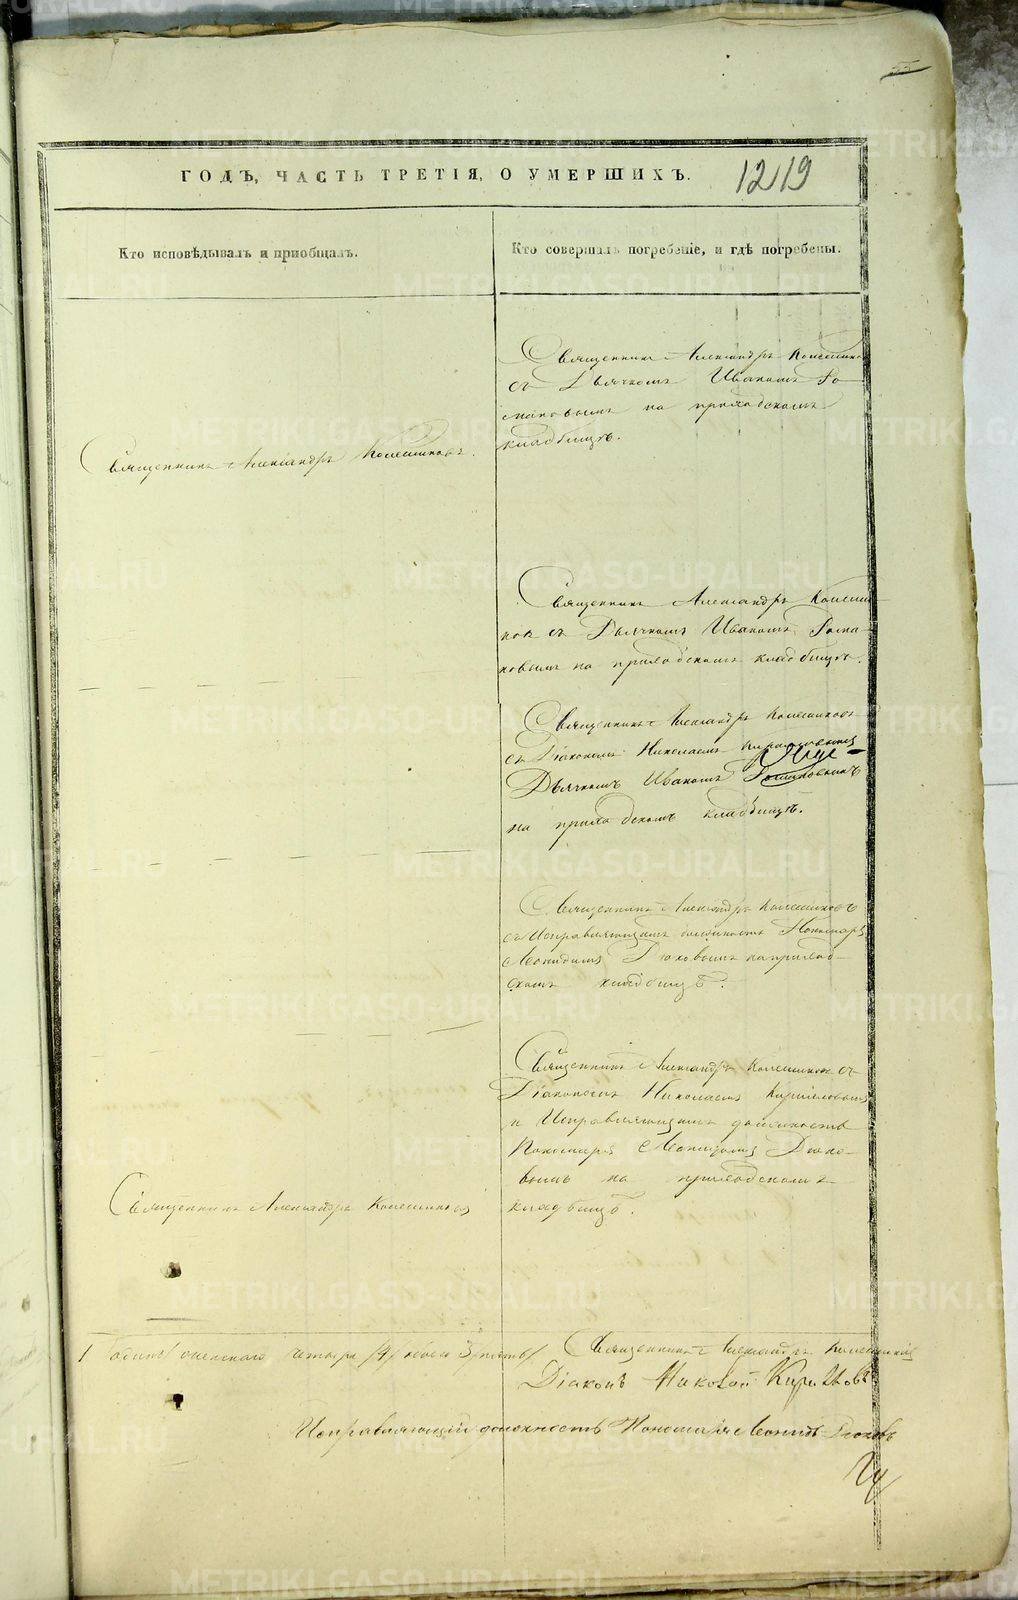 55
ГОДЪ, ЧАСТЬ ТРЕТІЯ, О УМЕРШИХЪ.
1219
Кто исповѣдывалъ и пріобщалъ.
Кто совершалъ погребеніе, и гдѣ погребены.
Священникъ Александръ Колесников
съ Дьячкомъ Иваномъ Ро-
мановымъ на приходскомъ
кладбищѣ.
Священникъ Александръ Колесниковъ.
Священникъ Александръ Колесни-
ковъ съ Дьячкомъ Иваномъ Рома-
новымъ на приходскомъ кладбищѣ.
Священникъ Александръ Колесниковъ
съ Діакономъ Николаемъ Кирилловымъ
Дьячкомъ Иваномъ Романовымъ
на приходскомъ кладбищѣ.
Священникъ Александръ Колесниковъ
съ Исправляющимъ должность Пономаря
Леонидомъ на приход-
скомъ кладбищѣ.
Священникъ Александръ Колесниковъ съ
Діакономъ Николаемъ Кирилловымъ
и Исправляющимъ должность
Пономаря Леонидомъ
вымъ на приходскомъ
кладбищѣ.
Священникъ Александръ Колесниковъ
Священникъ Александръ Колесниковъ
Діаконъ Николай Кирилловъ
Исправляющій должность Пономаря Леонидъ
METRIKI.GASO-URAL.RU